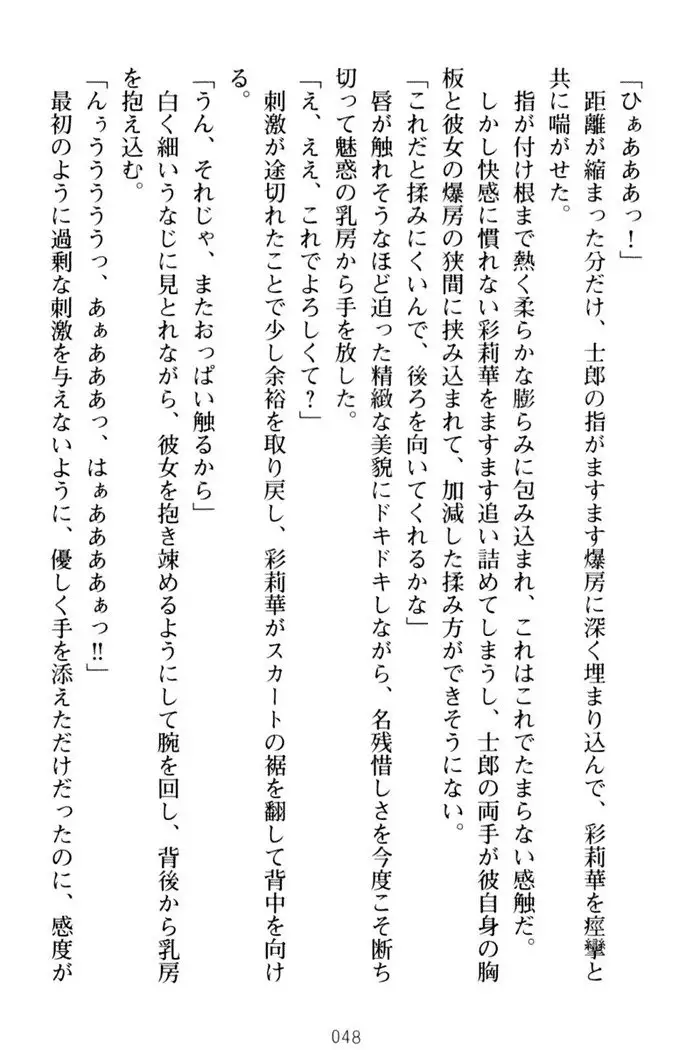 「ひぁあああっ！」
　距離が縮まった分だけ、士郎の指がますます爆房に深く埋まり込んで、彩莉華を痙攣と
共に喘がせた。
　指が付け根まで熱く柔らかな膨らみに包み込まれ、これはこれでたまらない感触だ。
　しかし快感に慣れない彩莉華をますます追い詰めてしまうし、士郎の両手が彼自身の胸
板と彼女の爆房の狭間に挟み込まれて、加減した揉み方ができそうにない。
「これだと揉みにくいんで、後ろを向いてくれるかな」
　唇が触れそうなほど迫った精緻な美貌にドキドキしながら、名残惜しさを今度こそ断ち
切って魅惑の乳房から手を放した。
「え、ええ、これでよろしくて？」
　刺激が途切れたことで少し余裕を取り戻し、彩莉華がスカートの裾を翻して背中を向け
る。
「うん、それじゃ、またおっぱい触るから」
　白く細いうなじに見とれながら、彼女を抱き竦めるようにして腕を回し、背後から乳房
を抱え込む。
「んぅうううううっ、あぁああああっ、はぁああああぁっ!!」
　最初のように過剰な刺激を与えないように、優しく手を添えただけだったのに、感度が
048